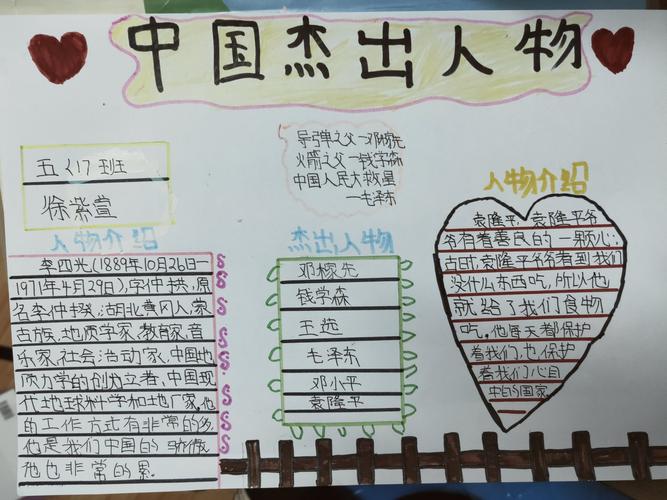 中国杰出人物
五〈1〉班
徐紫萱
导弹之父—邓稼先
火箭之父—钱学森
中国人民大救星
—毛泽东
人物介绍
李四光(1889年10月26日—
1971年4月29日),字仲拱,原
名李仲揆,湖北黄冈人,蒙
古族,地质学家,教育家,音
乐家,社会活动家,中国地
质力学的创立者,中国现
代地球科学和地厂家,他
的工作方式有非常的多,
他是我们中国的骄傲
他也非常的累.
杰出人物
邓稼先
钱学森
王选
毛泽东
邓小平
袁隆平
人物介绍
袁隆平,袁隆平爷
爷有着善良的一颗心;
古时,袁隆平爷爷看到我们
没什么东西吃,所以他
就给了我们食物
吃。他每天都保护
着我们,也保护
着我们心目
中的国家.